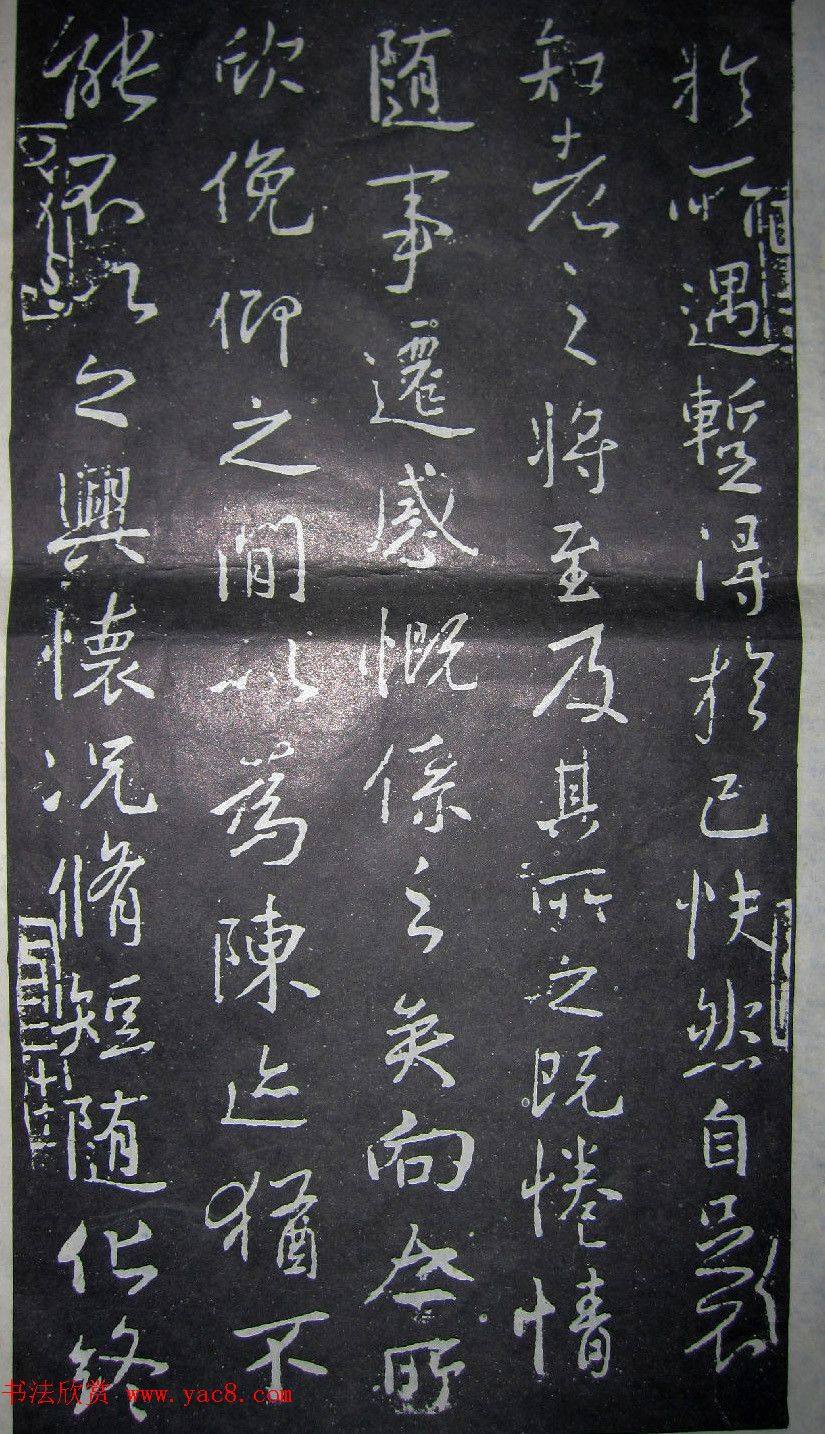 於所遇暫得於己快然自足不
知老之將至及其所之既惓情
随事遷感慨係之矣向之所
欣俛仰之閒以為陳迹猶不
能不以之興懷況脩短随化終
书法欣赏 www.yac8.com